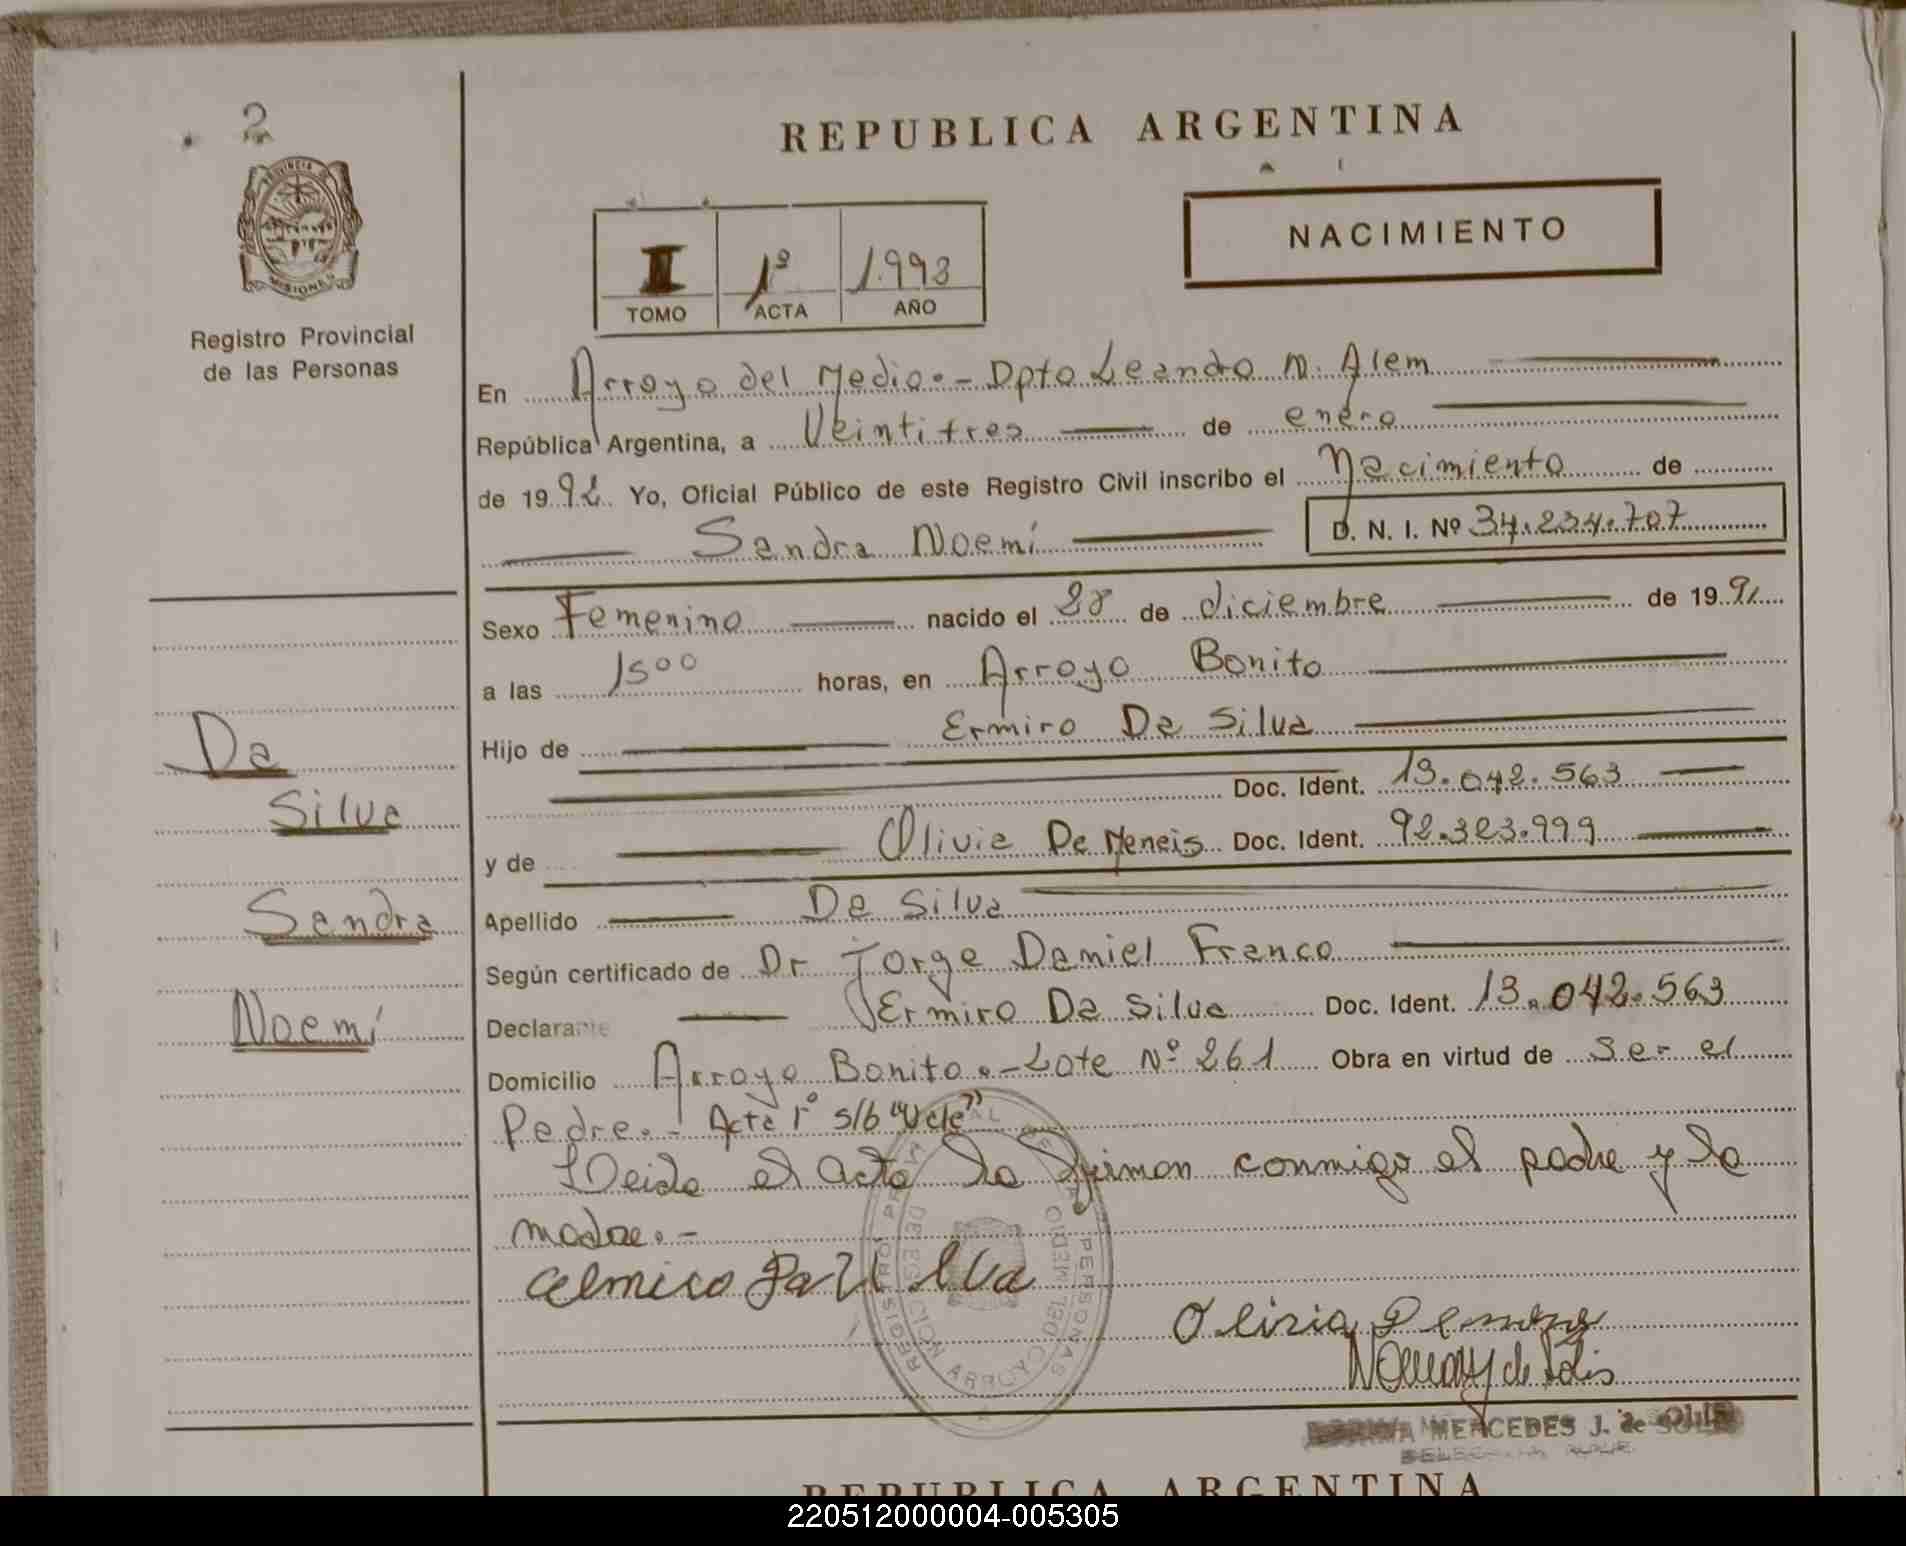 2
REPUBLICA ARGENTINA
PROVINCIA DE
MISIONES
Registro Provincial
de las Personas
NACIMIENTO
II 1º 1.993
TOMO ACTA AÑO
En Arroyo del Medio.- Dpto Leandro N. Alem
República Argentina, a Veintitres de enero
de 1992 Yo, Oficial Público de este Registro Civil inscribo el Nacimiento de
Sandra Noemí D. N. I. Nº 34.234.707
Sexo Femenino nacido el 28 de diciembre de 1991
a las 1500 horas, en Arroyo Bonito
Hijo de Ermiro Da Silva
Doc. Ident. 13.042.563
y de Olivia De Meneis Doc. Ident. 92.323.999
Apellido Da Silva
Según certificado de Dr Jorge Daniel Franco
Declarante Ermiro Da Silva Doc. Ident. 13.042.563
Domicilio Arroyo Bonito.- Lote Nº 261 Obra en virtud de ser el
Padre.- Acta 1º s/b "Vale"
Leida el acta la firman conmigo el padre y la
madre.-
Da
Silva
Sandra
Noemí
MERCEDES J. de SOLIS
REPUBLICA ARGENTINA
220512000004-005305